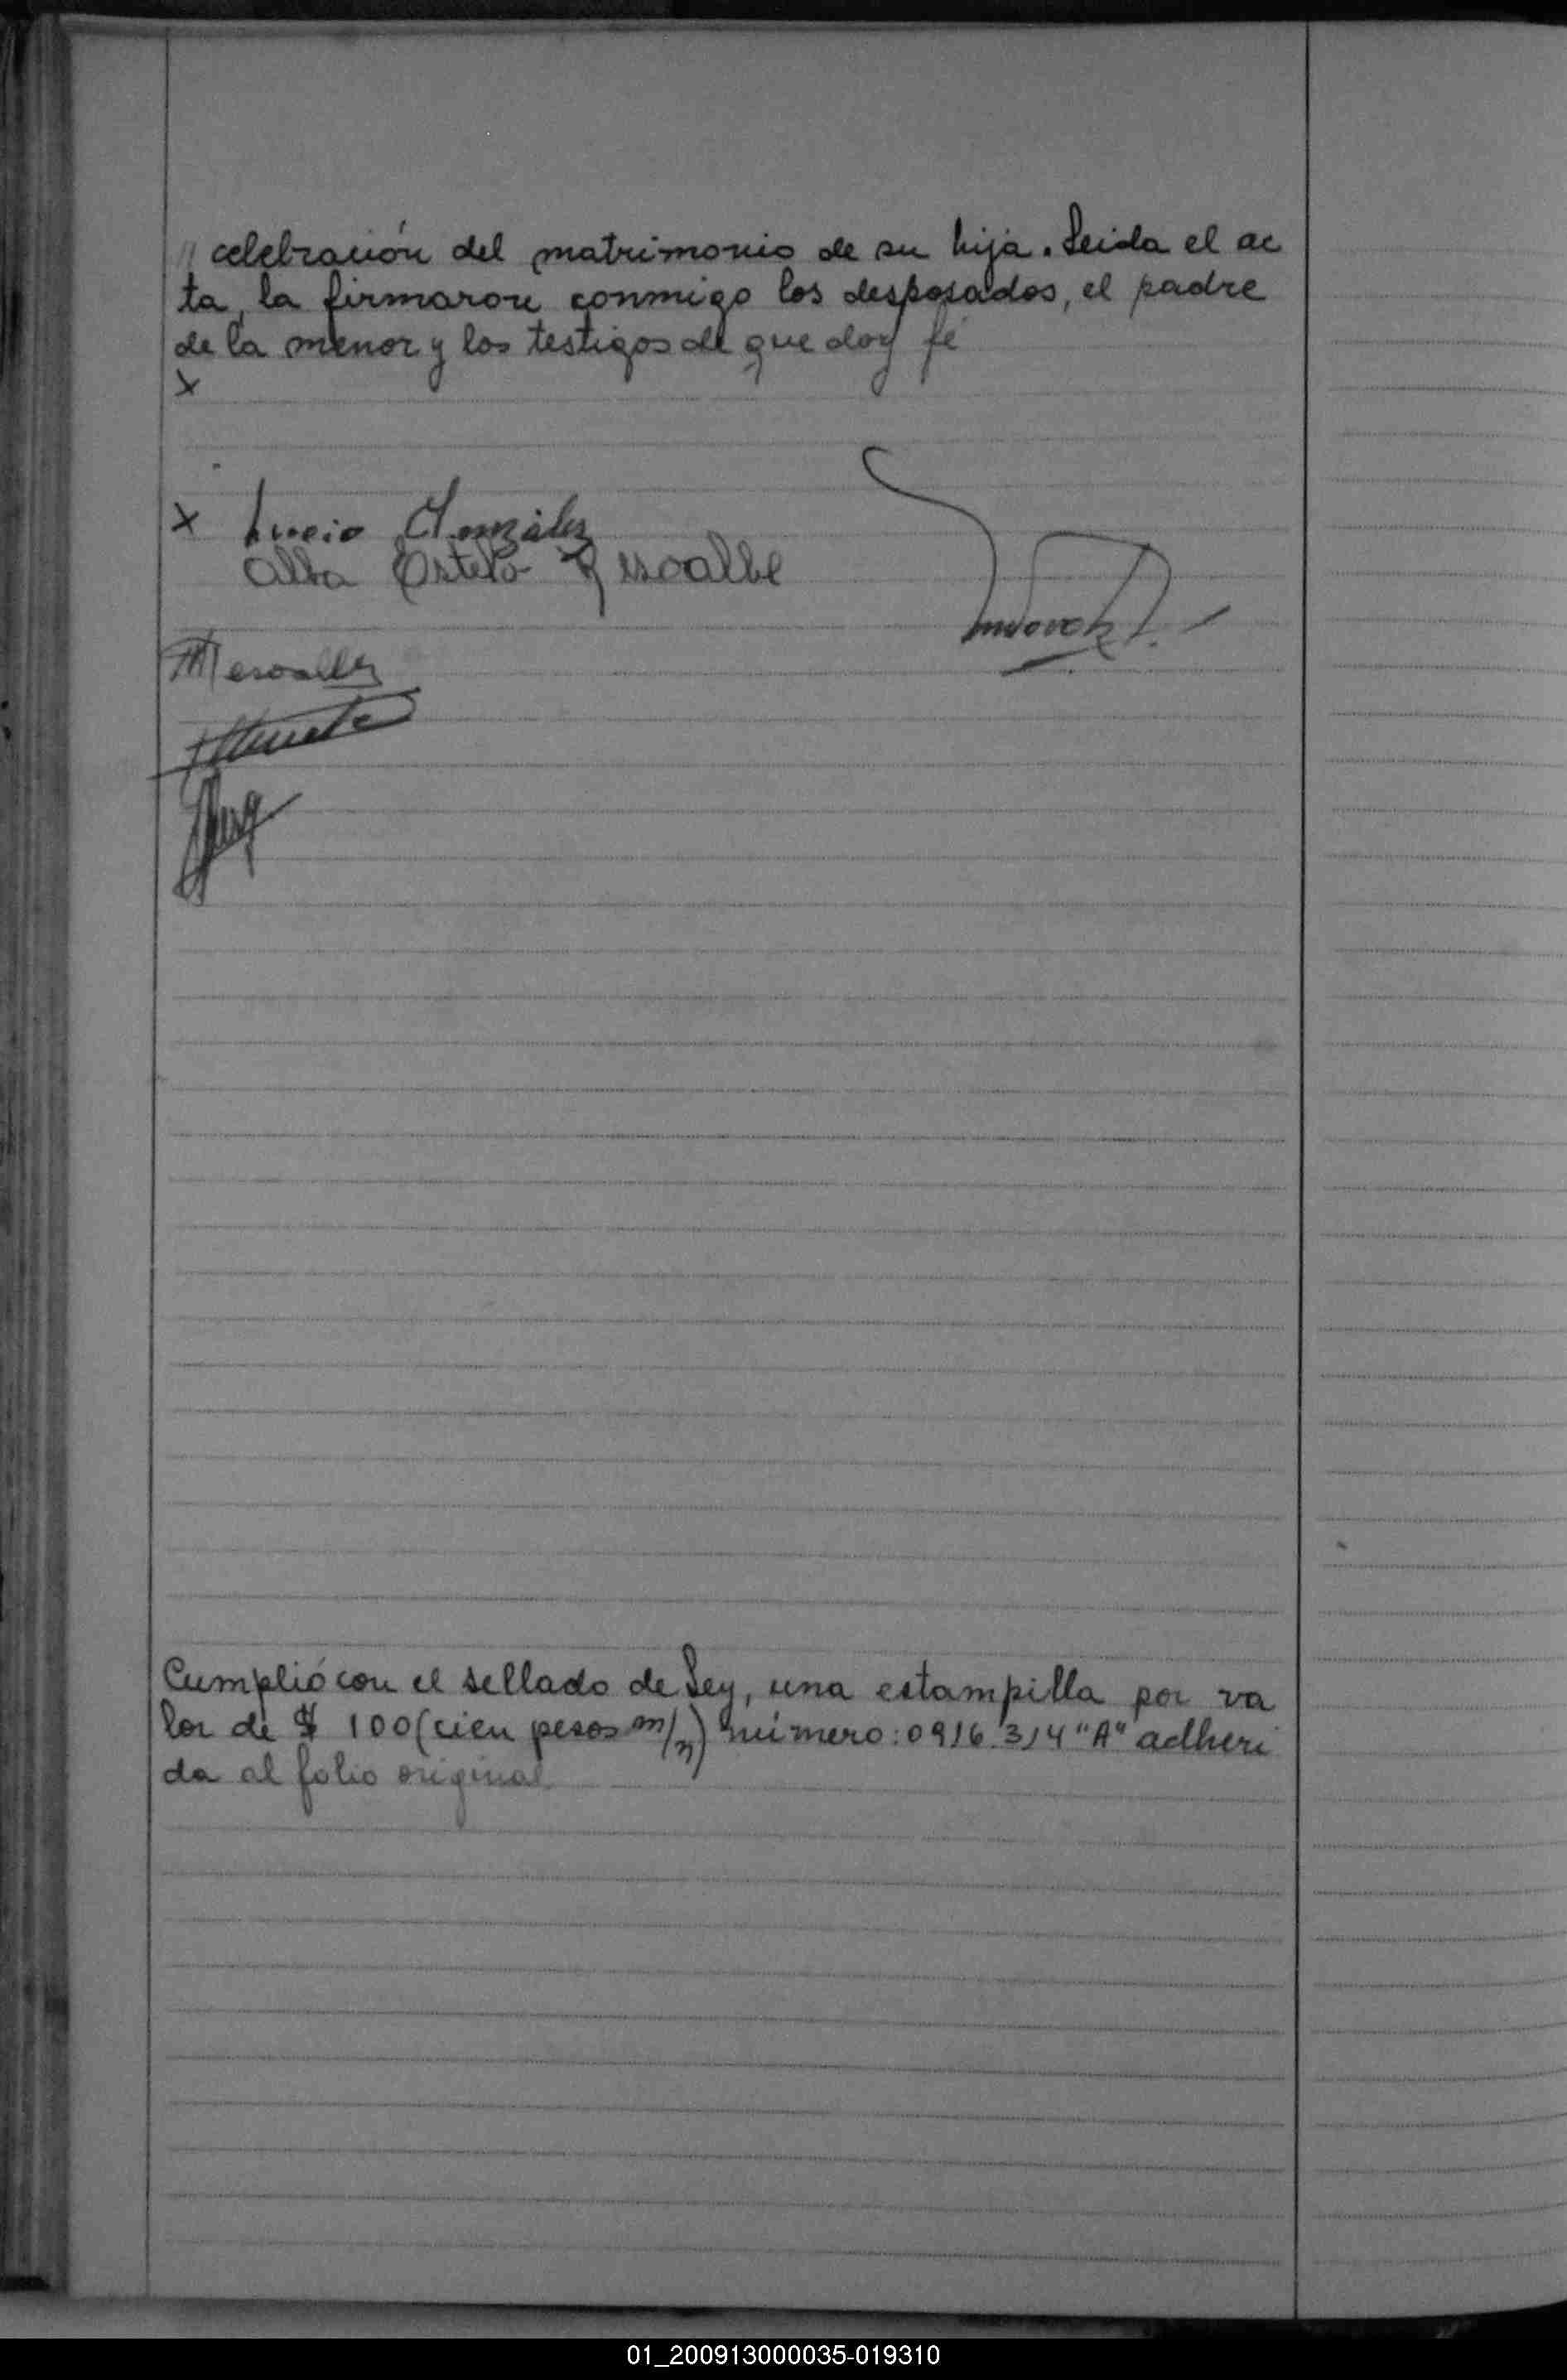 // celebración del matrimonio de su hija. Leida el ac
ta, la firmaron conmigo los desposados, el padre
de la menor y los testigos de que doy fé
x
x Lucio González
Alba Estela
Cumplió con el sellado de Ley, una estampilla por va
lor de $ 100 (cien pesos m/n) número: 0916.314 "A" adheri
da al folio original
01_200913000035-019310